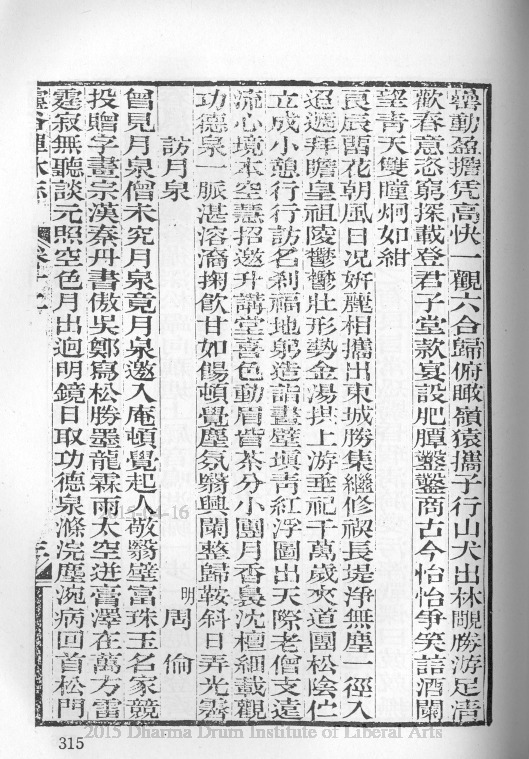 罍動盈擔凭高快一觀六合歸俯瞰嶺猿攜子行山犬出林覷勝游足清
歡春意恣窮探載登君子堂款宴設肥膻鑿鑿商古今怡怡爭笑語酒闌
望青天雙瞳炯如紺
良辰當花朝風日况妍麗相攜出東城勝集繼修禊長堤淨無塵一徑入
迢遞拜瞻皇祖陵鬱鬱壯形勢金湯拱上游垂祀千萬歲夾道團松陰伫
立成小憩行行訪名刹福地躬造詣畫壁塡青紅浮圖出天際老僧支遠
流心境本空慧招邀升講堂喜色動眉眥茶分小團月香裊沈檀細載觀
功德泉一脈湛溶潏掬飮甘如餳頓覺塵氛翳興闌整歸鞍斜日弄光霽
訪月泉
明 周倫
曾見月泉僧未究月泉竟月泉邀入庵頓覺起人敬翳壁富珠玉名家競
投贈字畫宗漢秦丹書傲吳鄭寫松勝墨龍霖雨太空迸嘗澤在萬方雷
霆寂無聽談元照空色月出逈明鏡日取功德泉滌浣塵涴病回首松門
靈谷禪林志
315
2015 Dharma Drum Institute of Liberal Arts